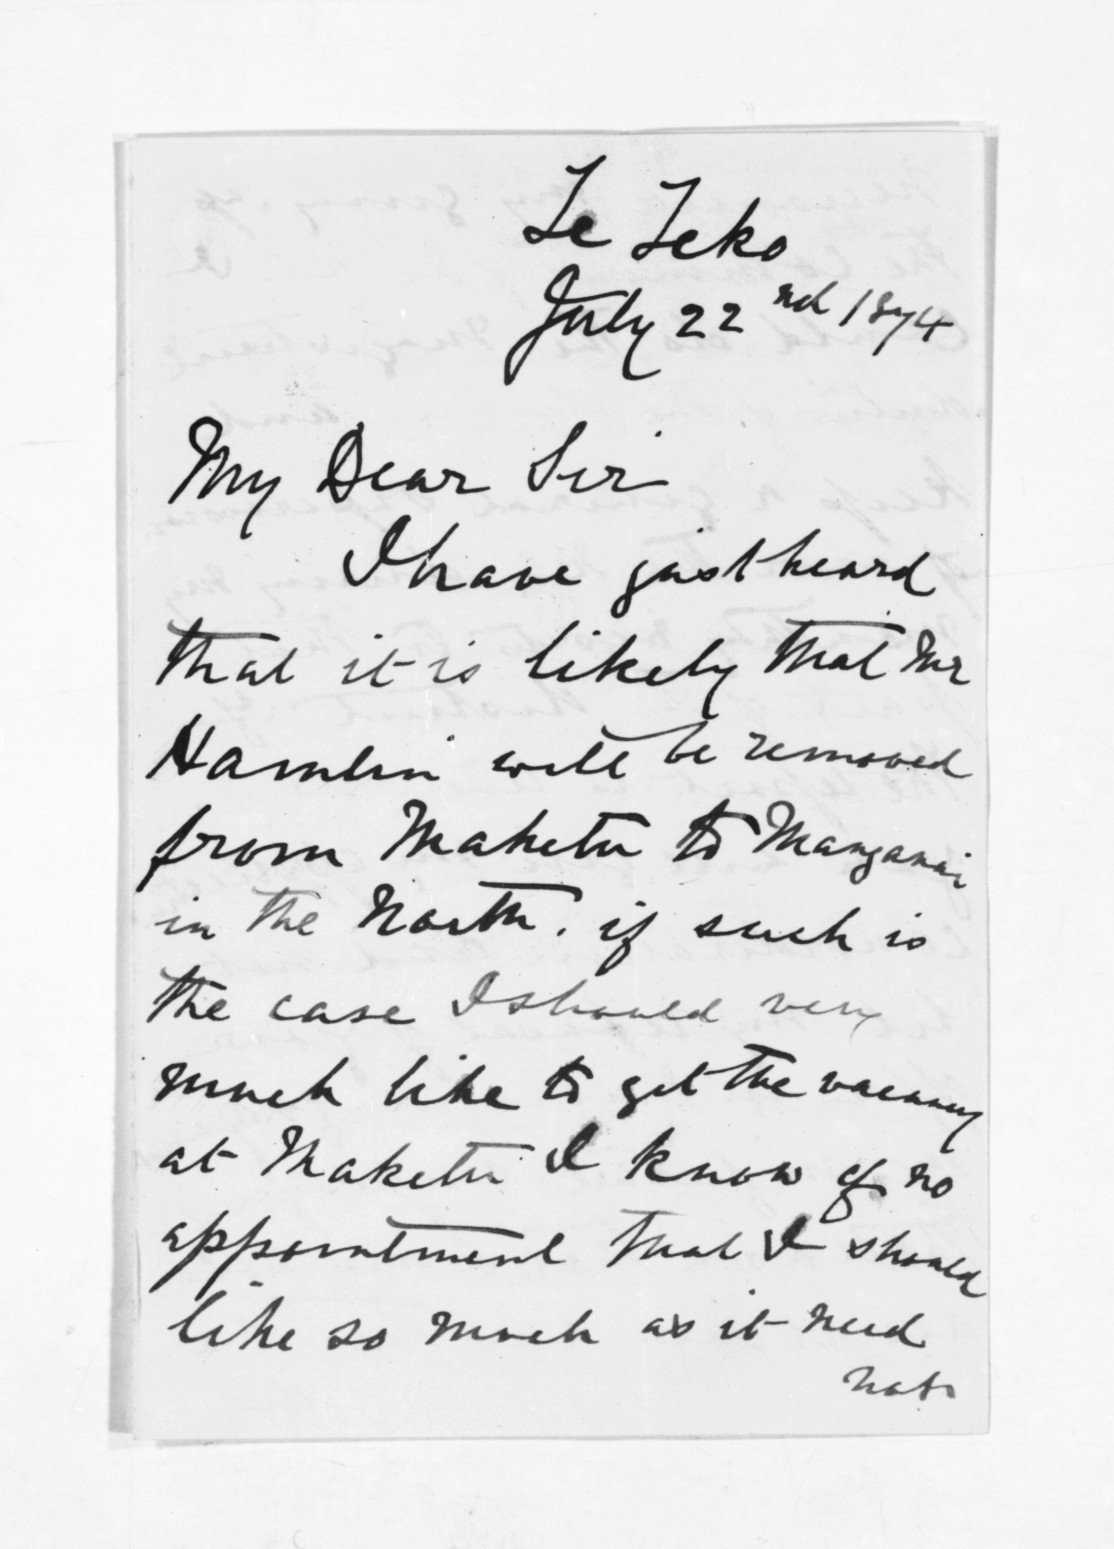 Te Teko
July 22nd 1874
My Dear Sir
I have just heard
that it is likely that Mr
Hamlin will be removed
from Maketu to Manganai
in the North. if such is
the case I should very
much like to get the vacancy
at Maketu I know of no
appointment that I should
like so much as it need
not